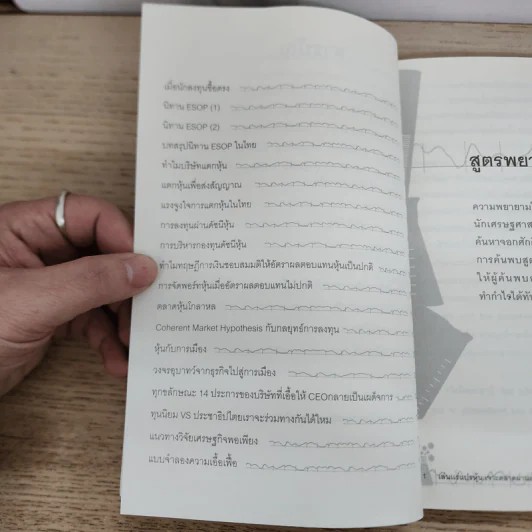 เมื่อนักลงทุนซื้อตรง
นิทาน ESOP (1)
นิทาน ESOP (2)
บทสรุปนิทาน ESOP ในไทย
ทำไมบริษัทแตกหุ้น
แตกหุ้นเพื่อส่งสัญญาณ
แรงจูงใจการแตกหุ้นในไทย
การลงทุนผ่านดัชนีหุ้น
การบริหารกองทุนดัชนีหุ้น
ทำไมทฤษฎีการเงินชอบสมมติให้อัตราผลตอบแทนหุ้นเป็นปกติ
การจัดพอร์ทหุ้นเมื่ออัตราผลตอบแทนไม่ปกติ
ตลาดหุ้นโกลาหล
Coherent Market Hypothesis กับกลยุทธ์การลงทุน
หุ้นกับการเมือง
วงจรอุบาทว์จากธุรกิจไปสู่การเมือง
ทุกขลักษณะ 14 ประการของบริษัทที่เอื้อให้ CEOกลายเป็นเผด็จการ
ทุนนิยม VS ประชาธิปไตยเราจะร่วมทางกันได้ไหม
แนวทางวิจัยเศรษฐกิจพอเพียง
แบบจำลองความเอื้อเฟื้อ
สูตรพยา
ความพยายามใ
นักเศรษฐศาส
ค้นหาจอกศักดิ์
การค้นพบสูต
ให้ผู้ค้นพบ
ทำกำไรได้ทัน
1